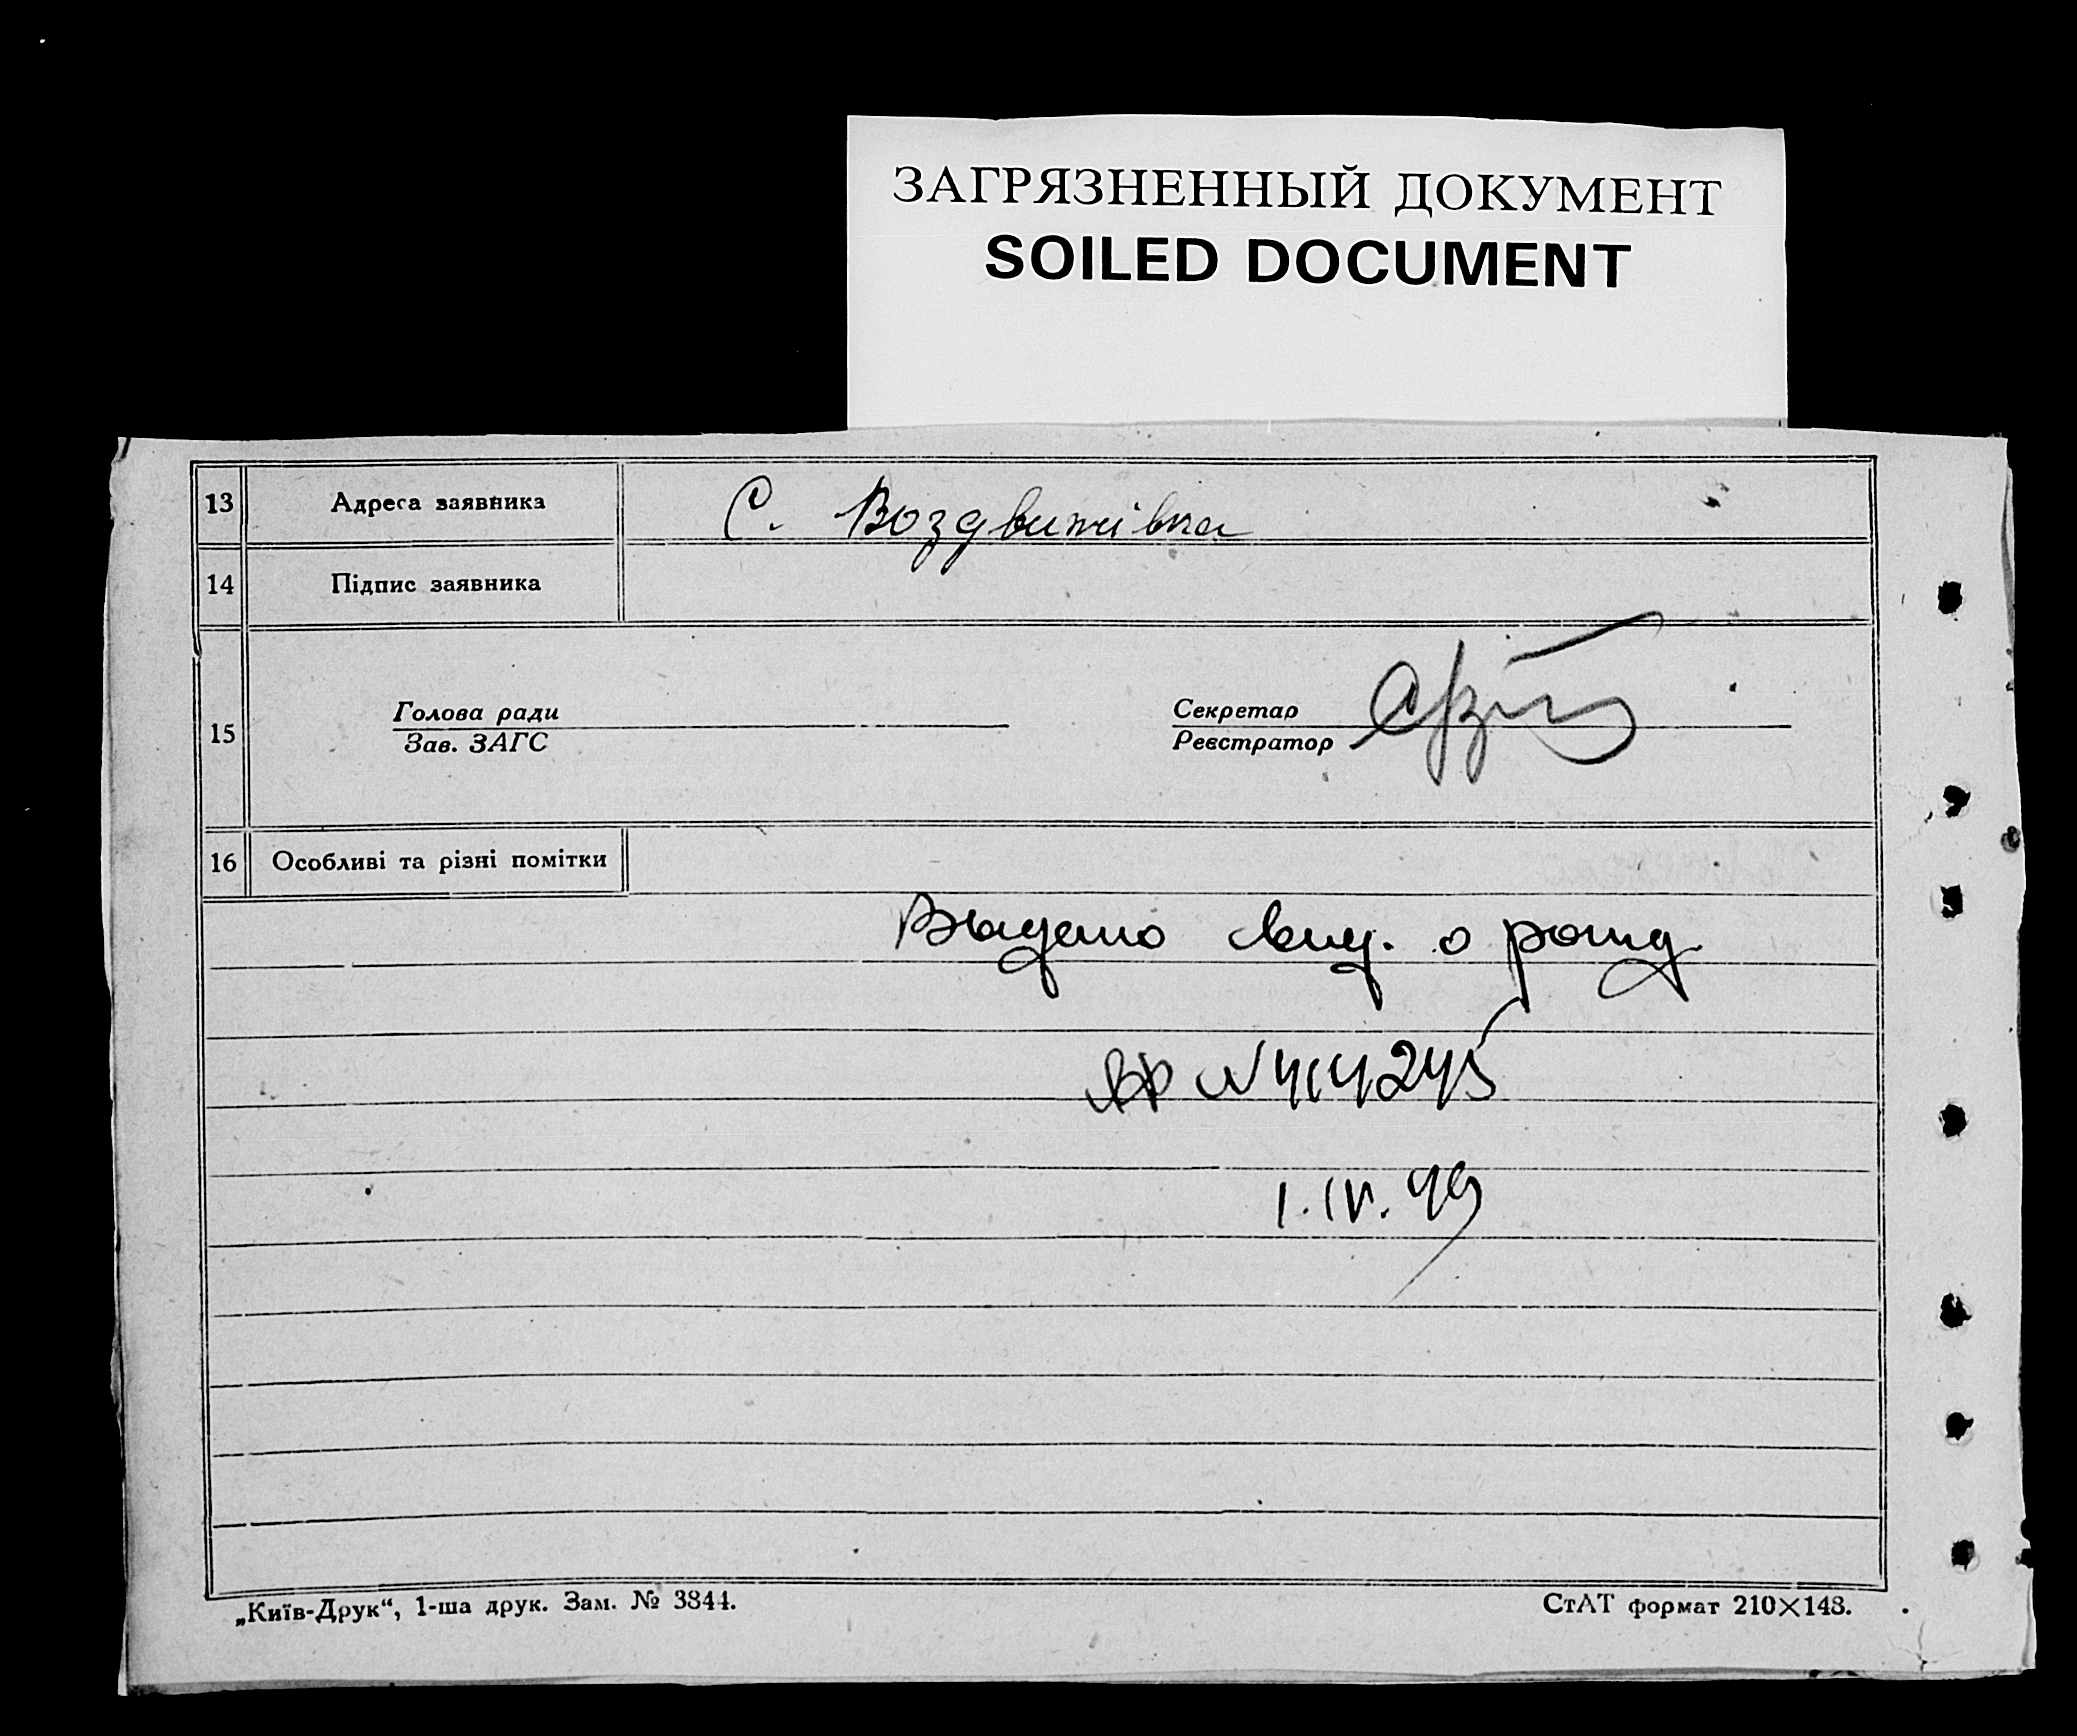 ЗАГРЯЗНЕННЫЙ ДОКУМЕНТ
SOILED DOCUMENT
13 Адреса заявника С. Воздвижівка
14 Підпис заявника
15 Голова ради Секретар
Зав. ЗАГС Реєстратор
16 Особливі та різні помітки
Выдано свид. о рожд.
N 414245
1.IV.49
„Київ-Друк“, 1-ша друк. Зам. № 3844. СтАТ формат 210×148.